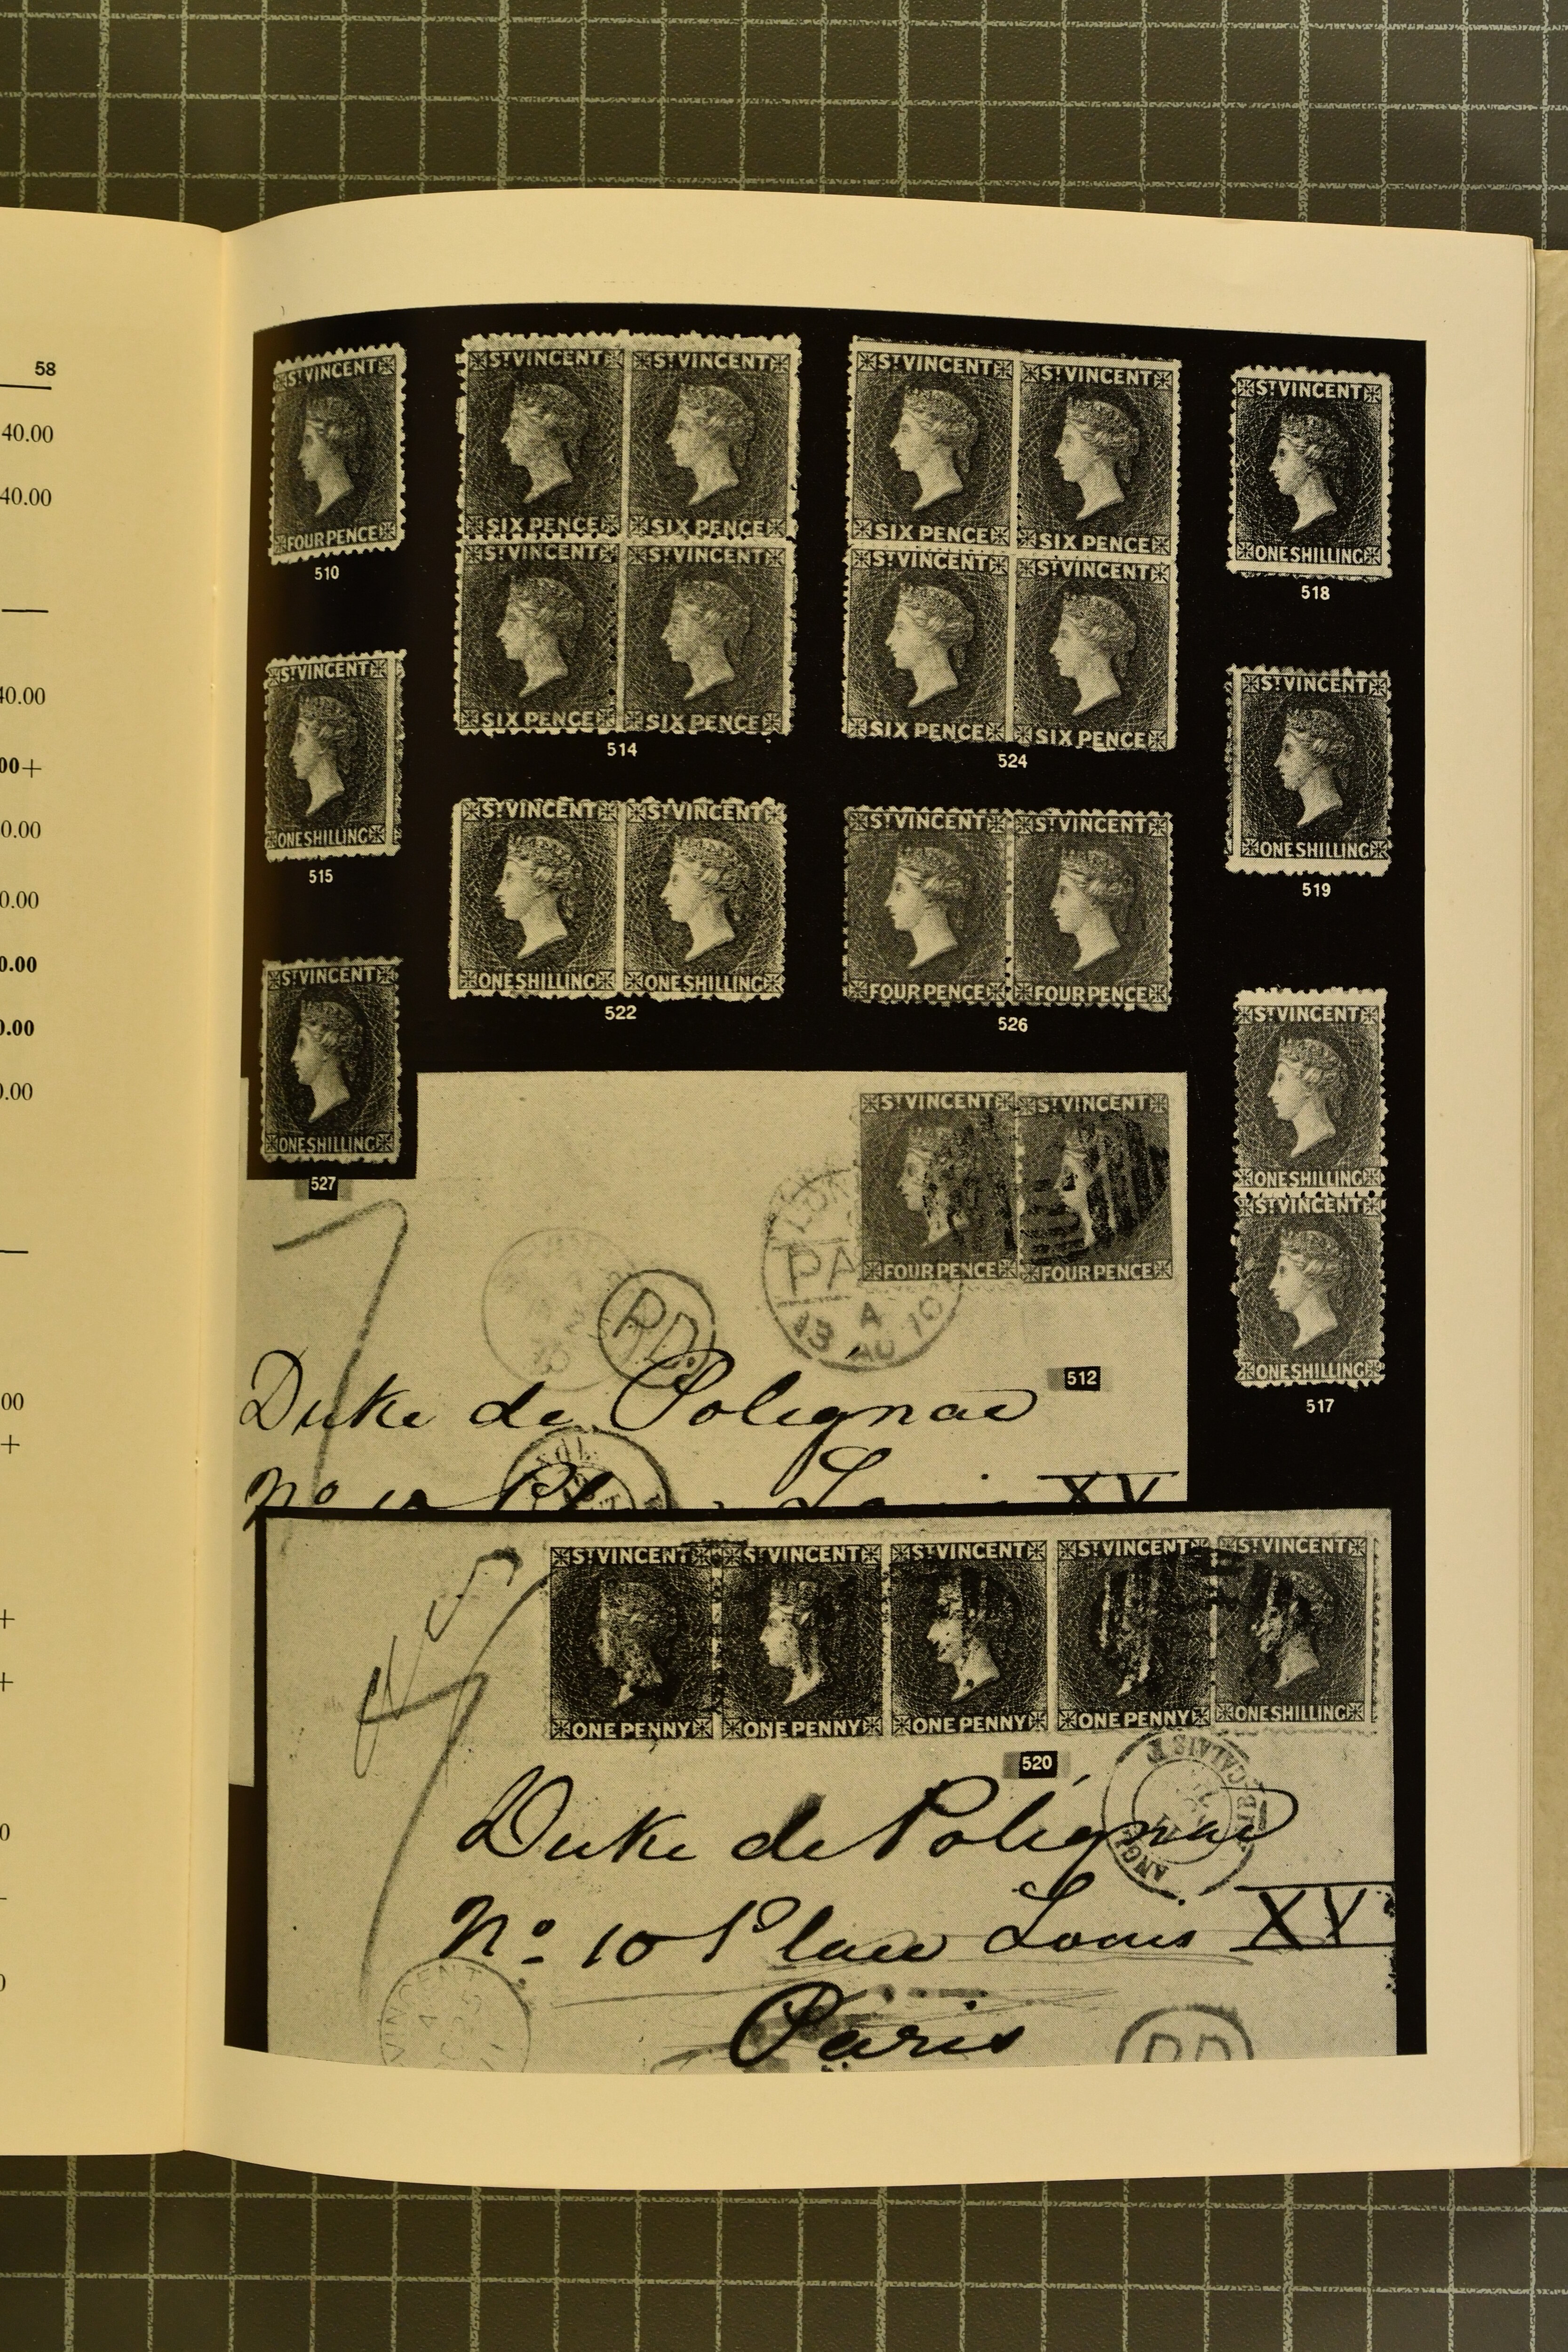 58
40.00
40.00
40.00
00+
0.00
0.00
0.00
0.00
0.00
00
+
+
+
0
0
ST VINCENT
FOUR PENCE
510
ST VINCENT ST VINCENT
SIX PENCE SIX PENCE
ST VINCENT ST VINCENT
SIX PENCE SIX PENCE
514
ST VINCENT ST VINCENT
SIX PENCE SIX PENCE
ST VINCENT ST VINCENT
SIX PENCE SIX PENCE
524
ST VINCENT
ONE SHILLING
518
ST VINCENT
ONE SHILLING
515
ST VINCENT ST VINCENT
ONE SHILLING ONE SHILLING
522
ST VINCENT ST VINCENT
FOUR PENCE FOUR PENCE
526
ST VINCENT
ONE SHILLING
519
ST VINCENT
ONE SHILLING
527
ST VINCENT
ONE SHILLING
ST VINCENT
ONE SHILLING
517
ST VINCENT ST VINCENT
FOUR PENCE FOUR PENCE
PD
LON
PA
A
13 AU 70
512
Duke de Polignac
No 10 Louis XV
ST VINCENT ST VINCENT ST VINCENT ST VINCENT ST VINCENT
ONE PENNY ONE PENNY ONE PENNY ONE PENNY ONE SHILLING
520
ANGL
CALAIS
Duke de Polignac
No 10 Place Louis XV
Paris
VINCENT
PD